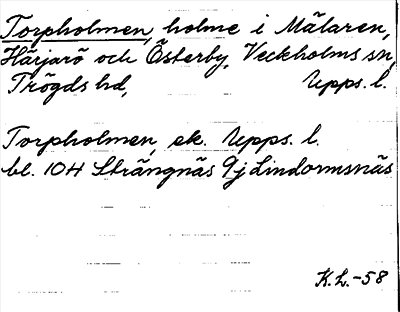 Torpholmen, holme i Mälaren,
Härjarö och Österby, Veckholms sn,
Trögds hd, Upps. l.
Torpholmen, ek. Upps. l.
bl. 104 Strängnäs 9j Lindormsnäs
K.L.-58